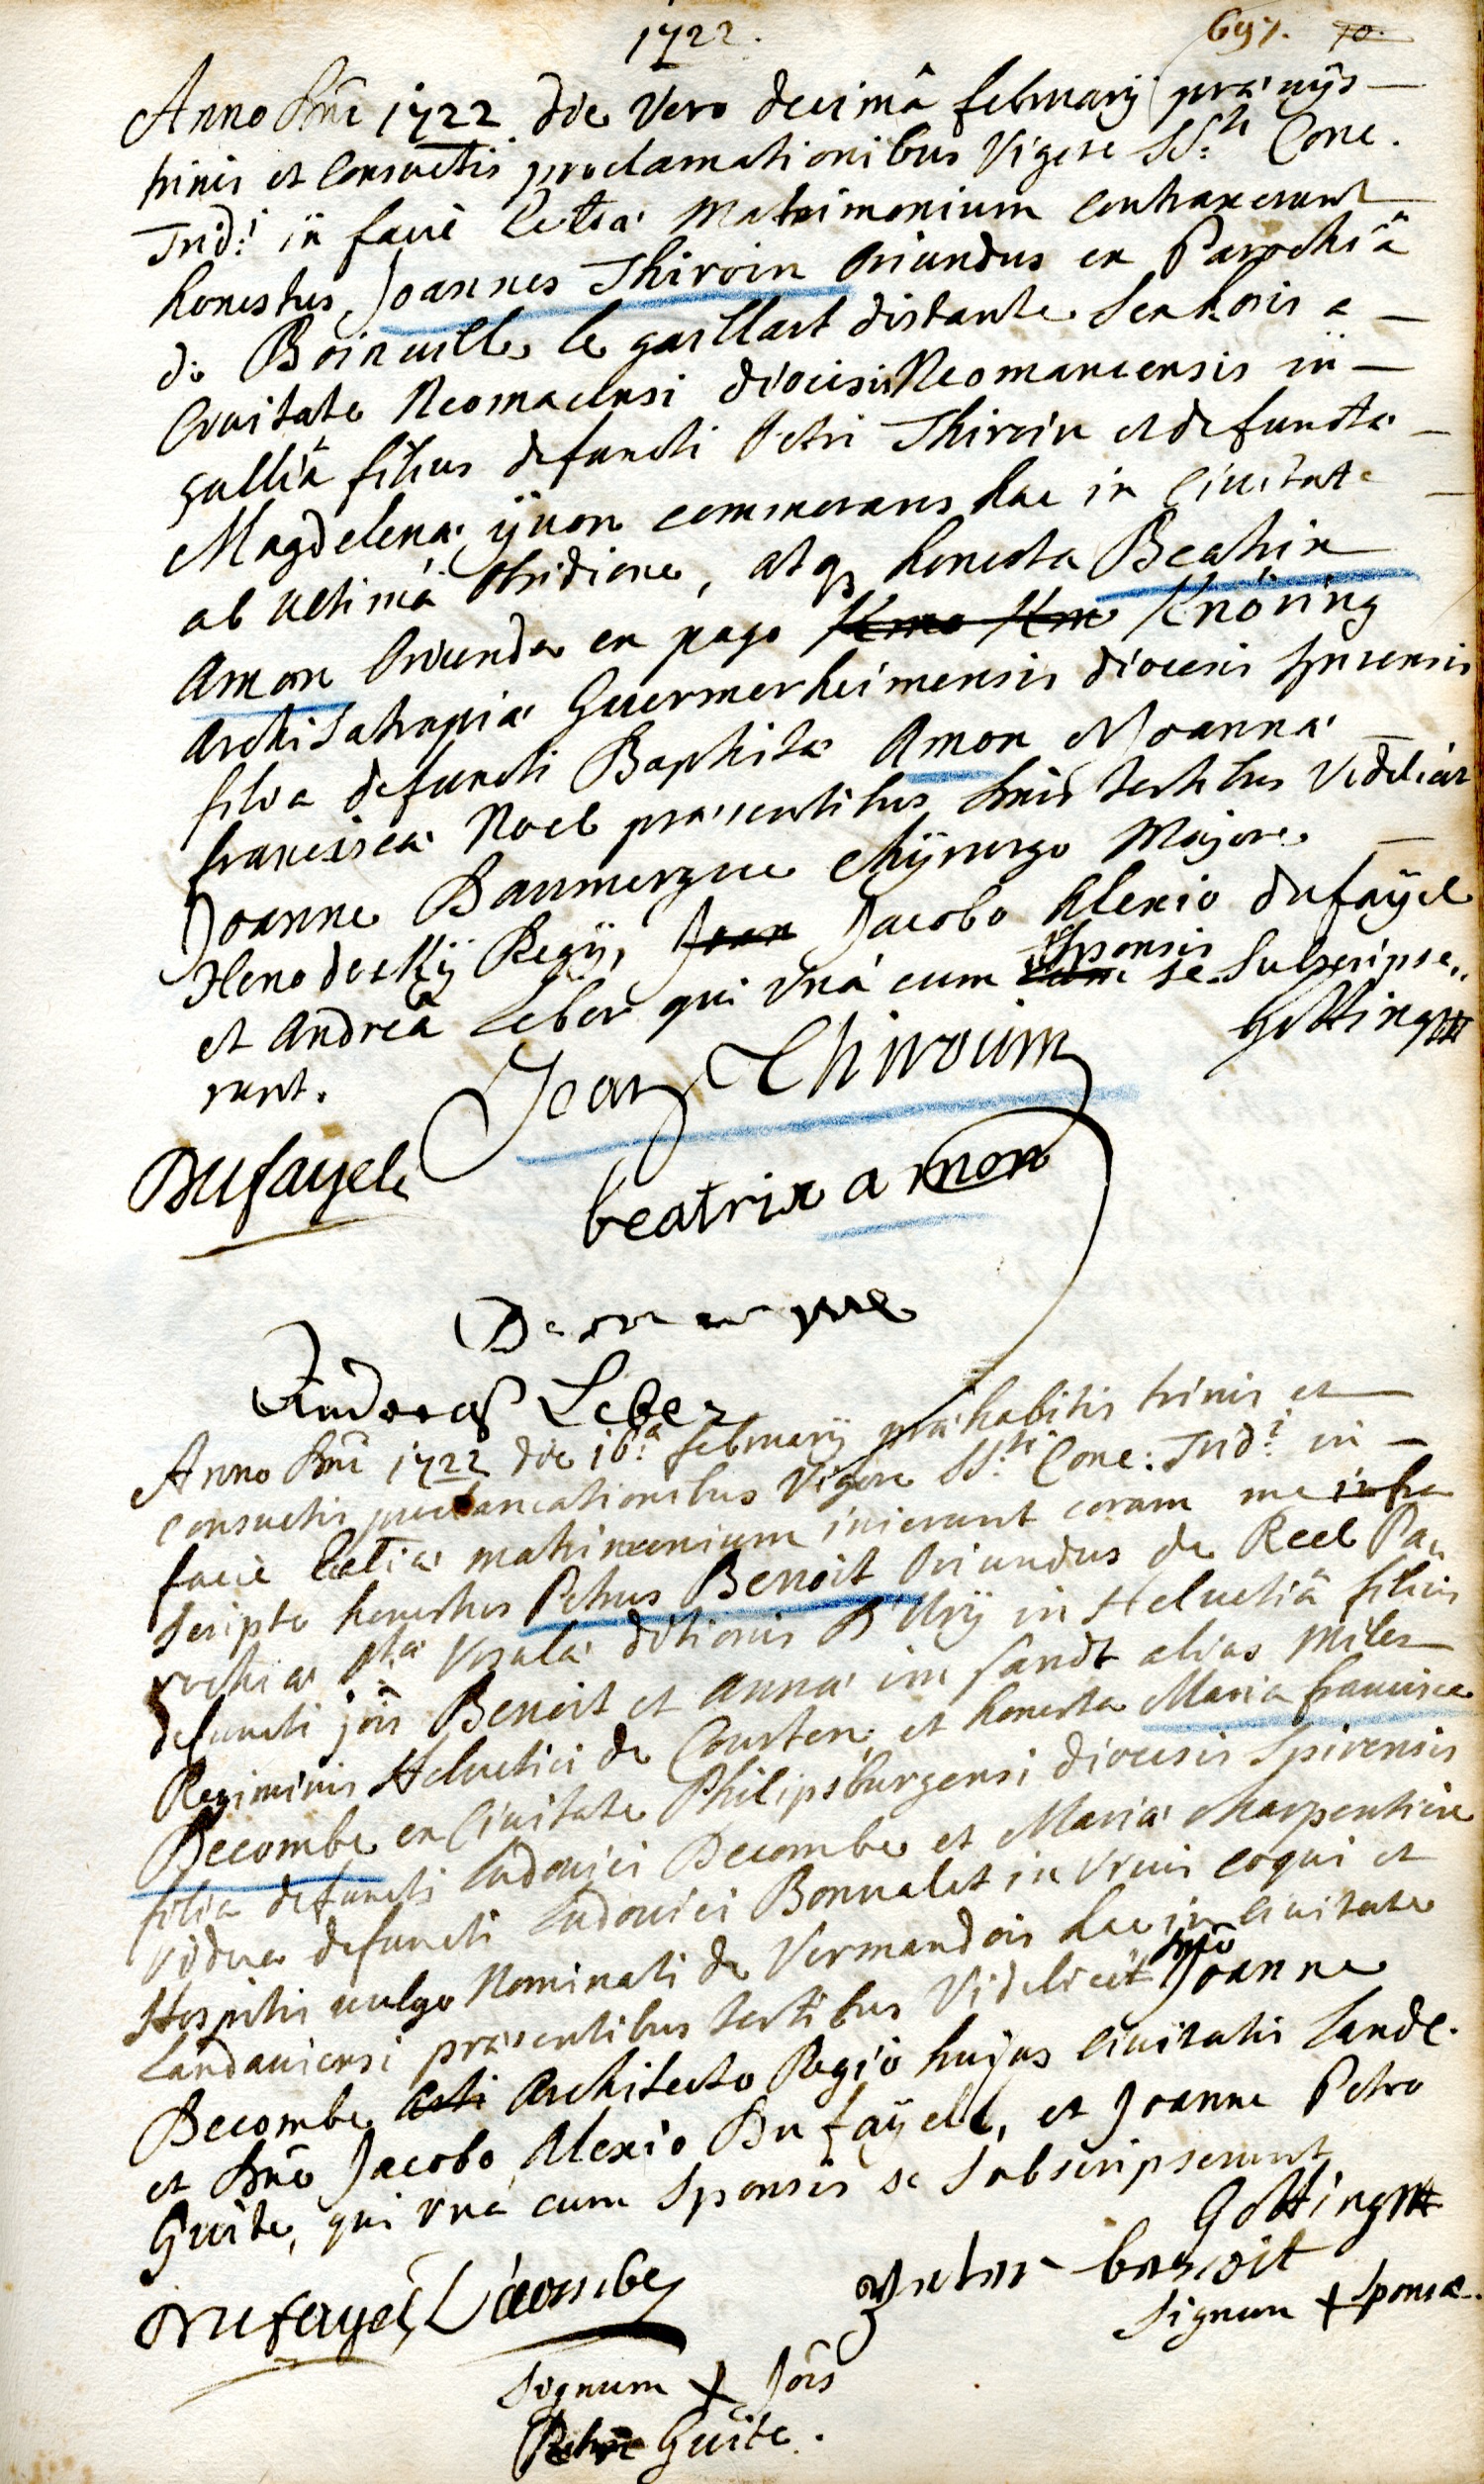 1722.
697. 70.
Anno Dnî 1722 die Vero decimâ february præ vijs
trinis et Consuetis proclamationibus Vigore SS:ti Conc.
Trid:i in faciê Ecclĩæ Matrimonium contraxerunt
honestus Joannes Thiroin Oriundus ex Parochiâ
de Boinville le gaillart distante sex horis a
Civitate diocesis in
galliâ filius defuncti Petri Thiroin et defunctæ
Magdelenæ yvon commorans hac in Civitate
ab ultimâ Obsidione, atq honesta Beatrix
Amon Oriunda ex pago Knöring
Archisatrapiæ Guermersheimensis diocesis Spirensis
filia defuncti Baptistæ Amon et Joannæ
franciscæ Noel præsentibus Dnis testibus Videlicet
Joanne chyrurgo Majore
Regij, Joan Jacobo Alexio dufayel
et Andreâ Leber qui Vnâ cum Sponsis se Subscripse,,
runt.
Gotting
Jean Thiroüin
Dufayel
beatrix amon
Andreas Leber
Anno Dnî 1722 die 16:a february præhabitis trinis et
consuetis proclamationibus Vigore SS:ti Conc: Trid:i in
faciê Ecclĩæ matrimonium inierunt coram me infra
scripto honestus Petrus Benoit Oriundus de Reel Pa,,
rochiæ Stæ Vrsulæ ditionis D'Ury in Helvetiâ filius
defuncti jois Benoit et Annæ im sandt alias Miles
Regiminis Helvetici de Courten, et honesta Maria francisca
Decombe ex Civitate Philipsburgensi diocesis Spirensis
filia defuncti Ludovici Decombe et Mariæ charpentiere
vidua defuncti Ludovici Bonnalet in Vivis coqui et
Hospitis vulgo Nominati de Vermandois hac in civitate
Landaviensi præsentibus testibus Videlicet Dnõ Joanne
Decombe Architecto Regio hujus Civitatis Lande.
et Dnõ Jacobo Alexio Dufayell, et Joanne Petro
Guite, qui vnâ cum Sponsis se Subscripserunt
Gotting
Dufayel Decombe
benoit
Signum + Sponsæ.
Signum + Jois
Petri Guite.